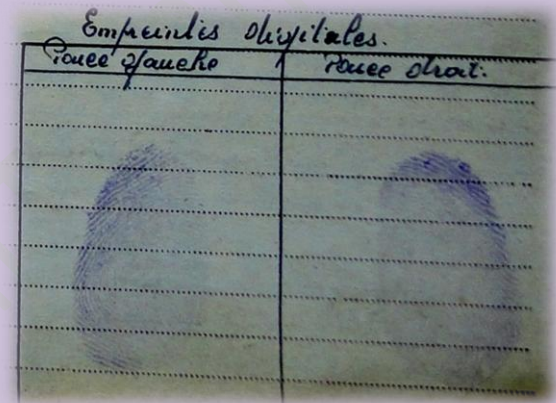 Empreintes digitales.
Pouce gauche Pouce droit.